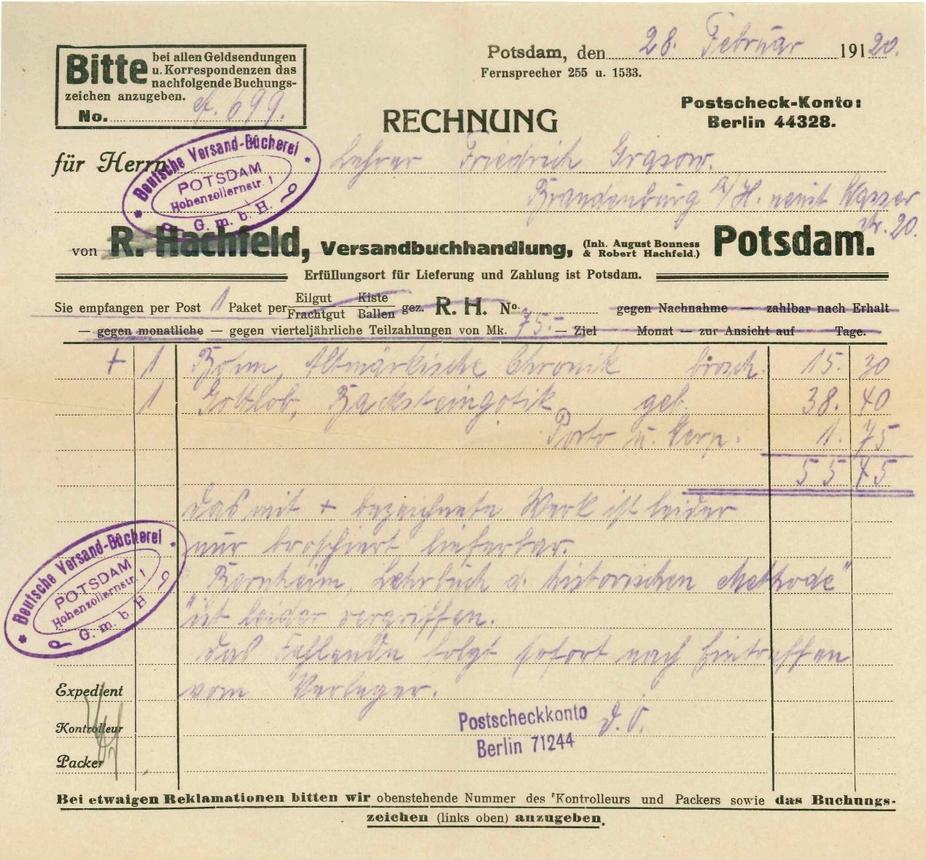 Potsdam, den 28. Februar 1920.
Fernsprecher 255 u. 1533.
Bitte bei allen Geldsendungen
u. Korrespondenzen das
nachfolgende Buchungs-
zeichen anzugeben.
No. 699.
Postscheck-Konto:
Berlin 44328.
RECHNUNG
für Herrn Lehrer Friedrich Grasow.
Deutsche Versand-Bücherei
POTSDAM
Hohenzollernstr. 1
G. m. b. H.
Brandenburg a/H.
Str. 20.
von R. Hachfeld, Versandbuchhandlung, (Inh. August Bonness & Robert Hachfeld.) Potsdam.
Erfüllungsort für Lieferung und Zahlung ist Potsdam.
Sie empfangen per Post 1 Paket per Eilgut Frachtgut Kiste Ballen gez. R. H. No. gegen Nachnahme — zahlbar nach Erhalt
— gegen monatliche — gegen vierteljährliche Teilzahlungen von Mk. 75.- — Ziel Monat — zur Ansicht auf Tage.
+ 1 Altmärkische Chronik brosch. 15. 30
1 Gottlob, Backsteingotik geb. 38. 40
Porto u. Verp. 1. 75
55 45
Das mit + bezeichnete Werk ist leider
nur broschiert lieferbar.
"Bernheim, Lehrbuch d. historischen Methode"
ist leider vergriffen.
Das Fehlende folgt sofort nach Eintreffen
vom Verleger.
D. O.
Deutsche Versand-Bücherei
POTSDAM
Hohenzollernstr. 1
G. m. b. H.
Postscheckkonto
Berlin 71244
Expedient
Kontrolleur
Packer
Bei etwaigen Reklamationen bitten wir obenstehende Nummer des Kontrolleurs und Packers sowie das Buchungs-
zeichen (links oben) anzugeben.